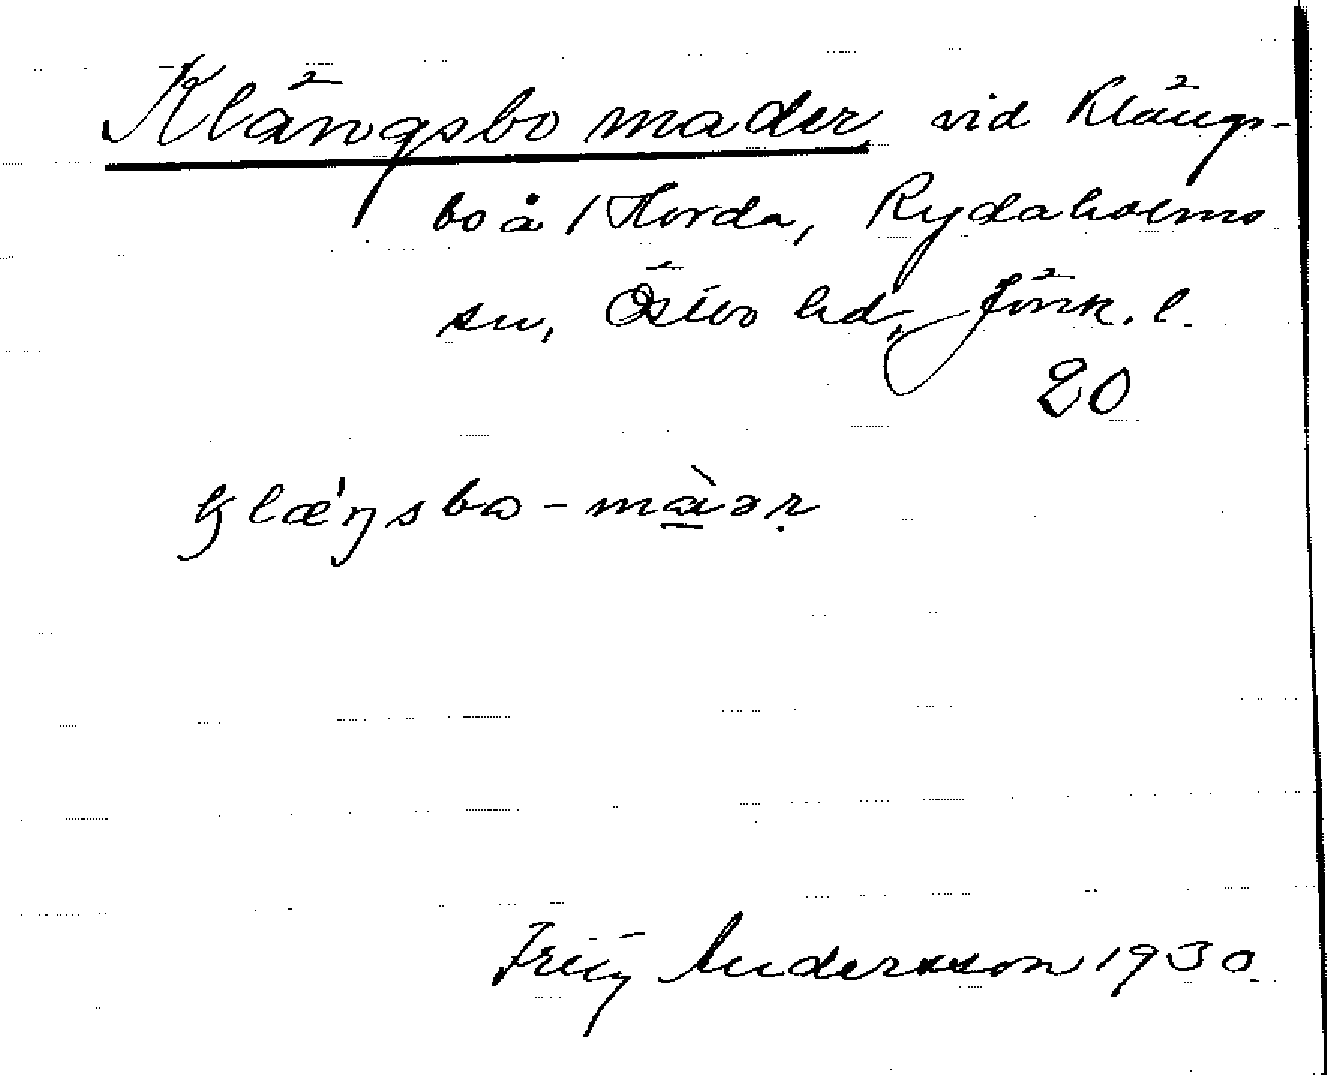 Klängsbo mader vid Klängs-
bo å / Horda, Rydaholms
sn, Östbo hd, Jönk. l.
20
klæŋsbo - màər
Fritz Andersson 1930